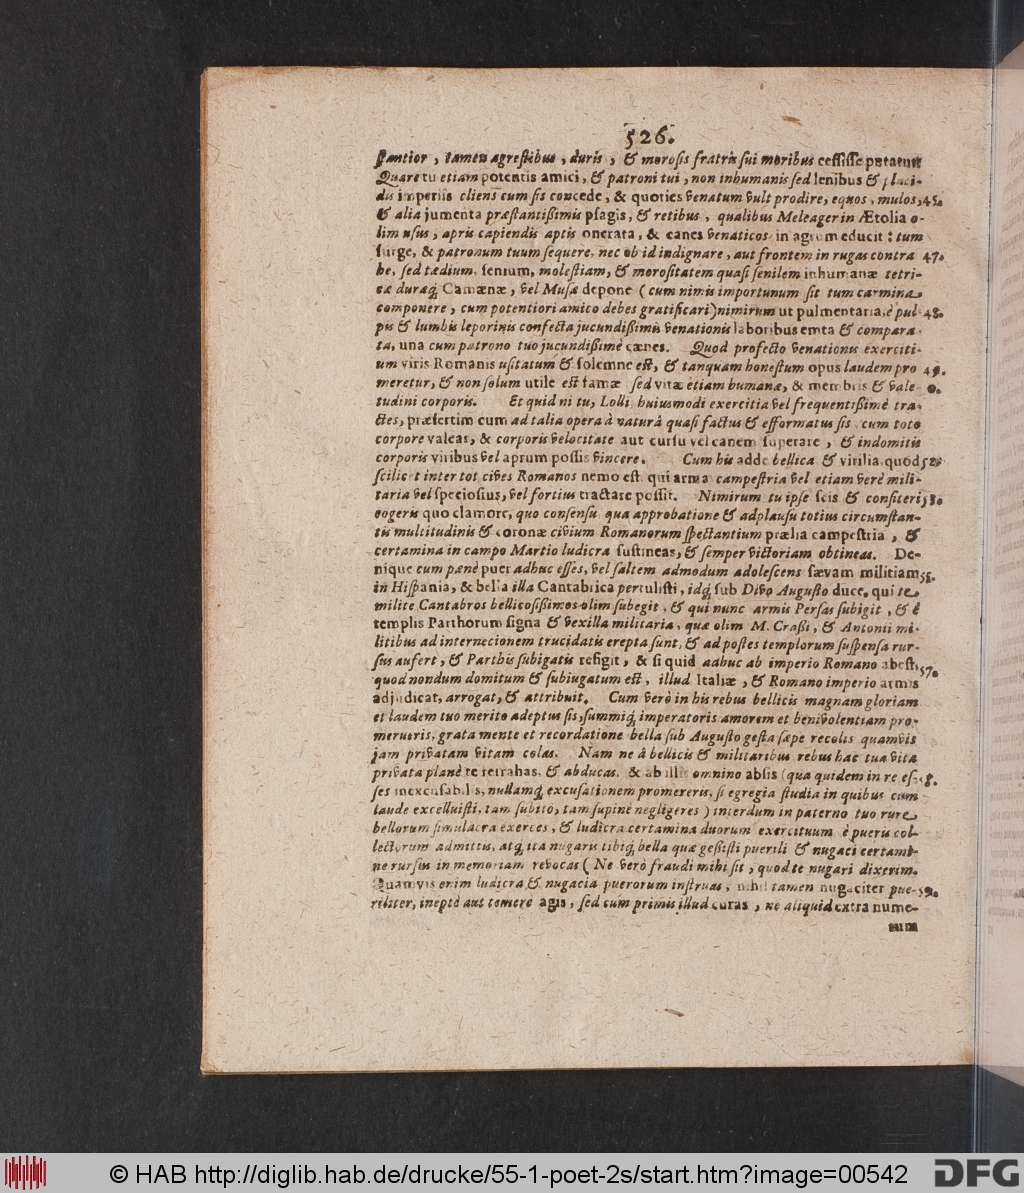 526.
stantior, tamen agrestibus, duris, & morosis fratris sui moribus cessisse putatur
Quare tu etiam potentis amici, & patroni tui, non inhumanis sed lenibus & placi-
dis imperiis cliens cum sis concede, & quoties venatum vult prodire, equos, mulos, 45.
& alia jumenta præstantißimis psagis, & retibus, qualibus Meleager in Ætolia o-
lim usus, apris capiendis aptis onerata, & canes venaticos in agrum educit: tum
surge, & patronum tuum sequere, nec ob id indignare, aut frontem in rugas contra 47.
he, sed tædium, senium, molestiam, & morositatem quasi senilem inhumanæ tetri-
cæ duraq́; Camænæ, vel Musæ depone (cum nimis importunum sit tum carmina
componere, cum potentiori amico debes gratificari) nimirum ut pulmentaria, è pul 48.
pis & lumbis leporinis confecta jucundißimis venationis laboribus emta & compara
ta, una cum patrono tuo jucundißimè cænes. Quod profecto venationis exerciti-
um viris Romanis usitatum & solemne est, & tanquam honestum opus laudem pro 49.
meretur, & non solum utile est famæ sed vitæ etiam humanæ, & membris & vale-
tudini corporis. Et quid ni tu, Lolli, huiusmodi exercitia vel frequentißimè tra-
ctes, præsertim cum ad talia opera à naturâ quasi factus & efformatus sis, cum toto
corpore valeas, & corporis velocitate aut cursu vel canem superare, & indomitis
corporis viribus vel aprum possis vincere. Cum his adde bellica & virilia, quod 52.
scilicet inter tot cives Romanos nemo est qui arma campestria vel etiam verè mili-
taria vel speciosius, vel fortius tractare possit. Nimirum tu ipse scis & confiteri 53.
cogeris quo clamore, quo consensu, qua approbatione & adplausu totius circumstan-
tis multitudinis & coronæ civium Romanorum spectantium prælia campestria, &
certamina in campo Martio ludicra sustineas, & semper victoriam obtineas. De-
nique cum pænè puer adhuc esses, vel saltem admodum adolescens sævam militiam 55.
in Hispania, & bella illa Cantabrica pertulisti, idq́; sub Divo Augusto duce, qui te
milite Cantabros bellicosißimos olim subegit, & qui nunc armis Persas subigit, & è
templis Parthorum signa & vexilla militaria, quæ olim M. Craßi, & Antonii mi-
litibus ad internecionem trucidatis erepta sunt, & ad postes templorum suspensa rur-
sus aufert, & Parthis subigatis refigit, & si quid adhuc ab imperio Romano abesti 57.
quod nondum domitum & subiugatum est, illud Italiæ, & Romano imperio armis
adjudicat, arrogat, & attribuit. Cum verò in his rebus bellicis magnam gloriam
et laudem tuo merito adeptus sis, summiq́; imperatoris amorem et benivolentiam pro-
merueris, grata mente et recordatione bella sub Augusto gesta sæpe recolis quamvis
jam privatam vitam colas. Nam ne â bellicis & militaribus rebus hac tua vita
privata planè te retrahas, & abducas, & ab illis omnino absis (qua quidem in re es- 58.
ses inexcusabilis, nullamq́; excusationem promereris, si egregia studia in quibus cum
laude excelluisti, tam subitò, tam supinè negligeres) interdum in paterno tuo rure
bellorum simulacra exerces, & ludicra certamina duorum exercituum è pueris col-
lectorum admittis, atq́; ita nugaris tibiq́; bella quæ geßisti puerili & nugaci certami-
ne rursus in memoriam revocas (Ne verò fraudi mihi sit, quod te nugari dixerim.
Quamvis enim ludicra & nugacia puerorum instruas, nihil tamen nugaciter pue- 59.
riliter, ineptè aut temerè agis, sed cum primis illud curas, ne aliquid extra nume-
rum
© HAB http://diglib.hab.de/drucke/55-1-poet-2s/start.htm?image=00542
DFG